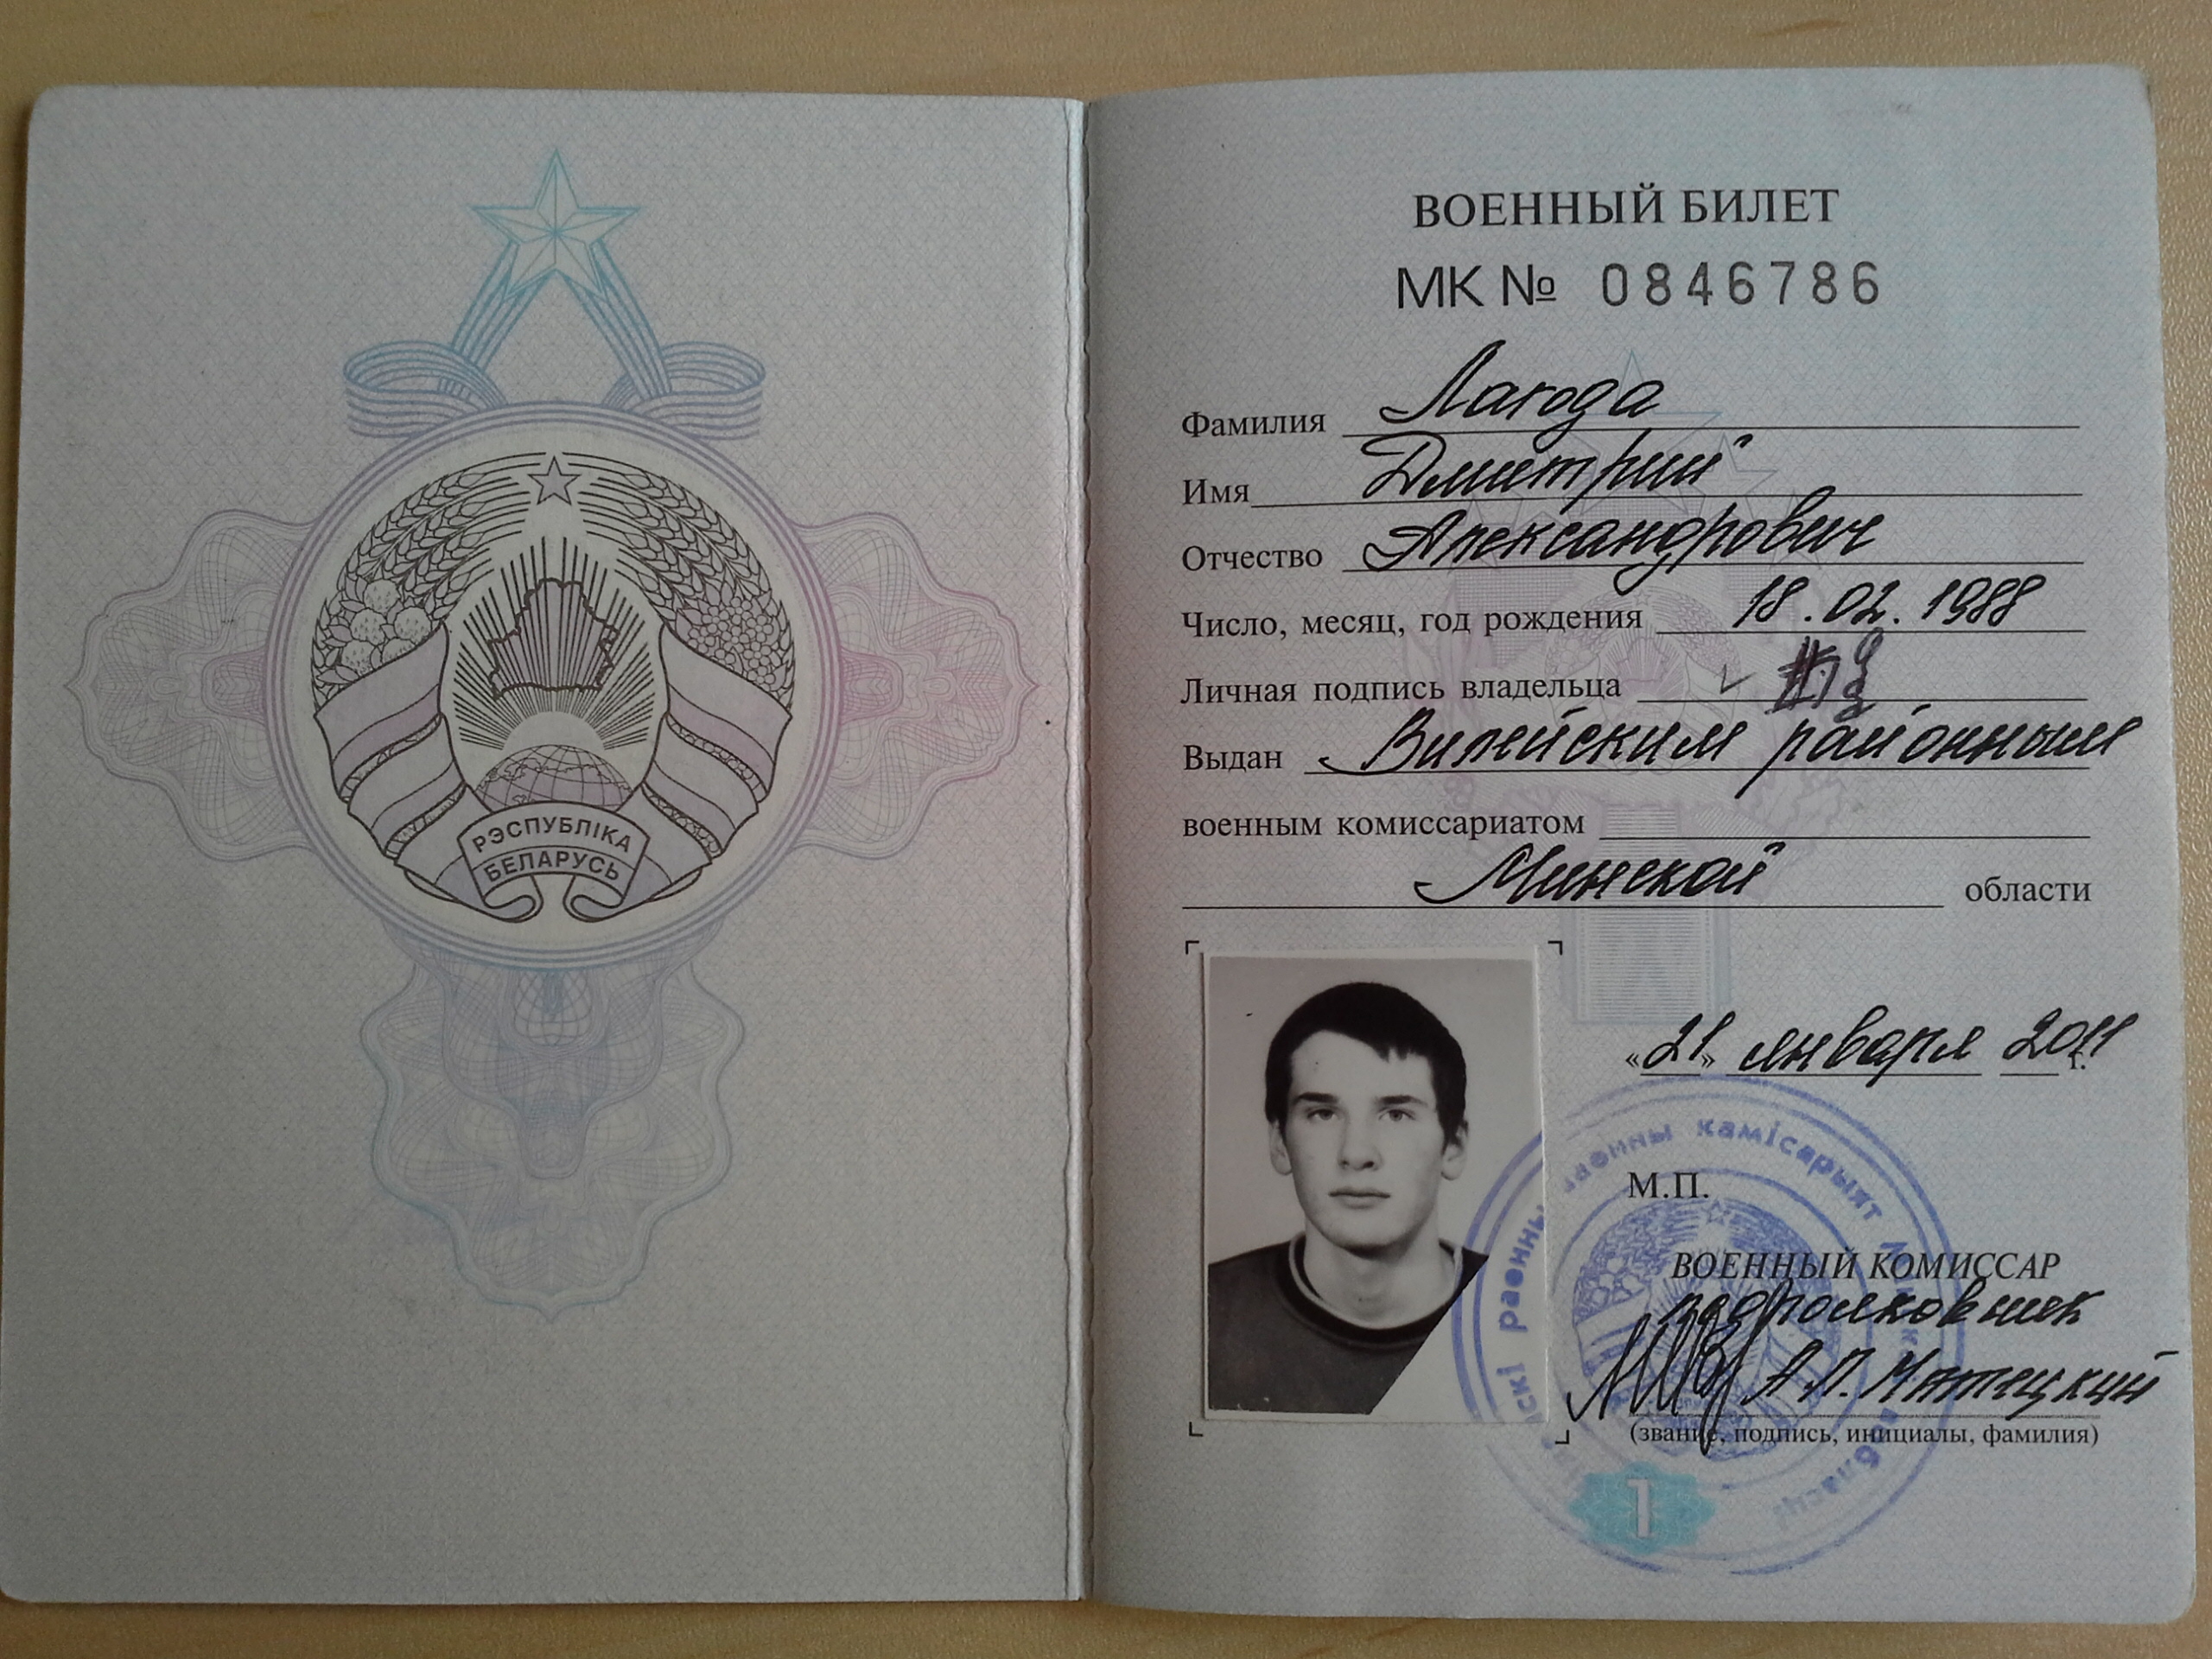 РЭСПУБЛІКА
БЕЛАРУСЬ
ВОЕННЫЙ БИЛЕТ
МК № 0846786
Фамилия Лагода
Имя Дмитрий
Отчество Александрович
Число, месяц, год рождения 18.02.1988
Личная подпись владельца
Выдан Вилейским районным
военным комиссариатом
Минской области
«21» января 2011 г.
М.П.
ВОЕННЫЙ КОМИССАР
подполковник
А.П.
(звание, подпись, инициалы, фамилия)
раённы ваенны камісарыят
1